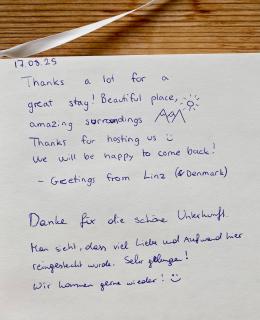 17.08.25
Thanks a lot for a
great stay! Beautiful place,
amazing surroundings
Thanks for hosting us :)
We will be happy to come back!
- Greetings from Linz (& Denmark)
Danke für die schöne Unterkunft.
Man sieht, dass viel Liebe und Aufwand hier
reingesteckt wurde. Sehr gelungen!
Wir kommen gerne wieder! :)